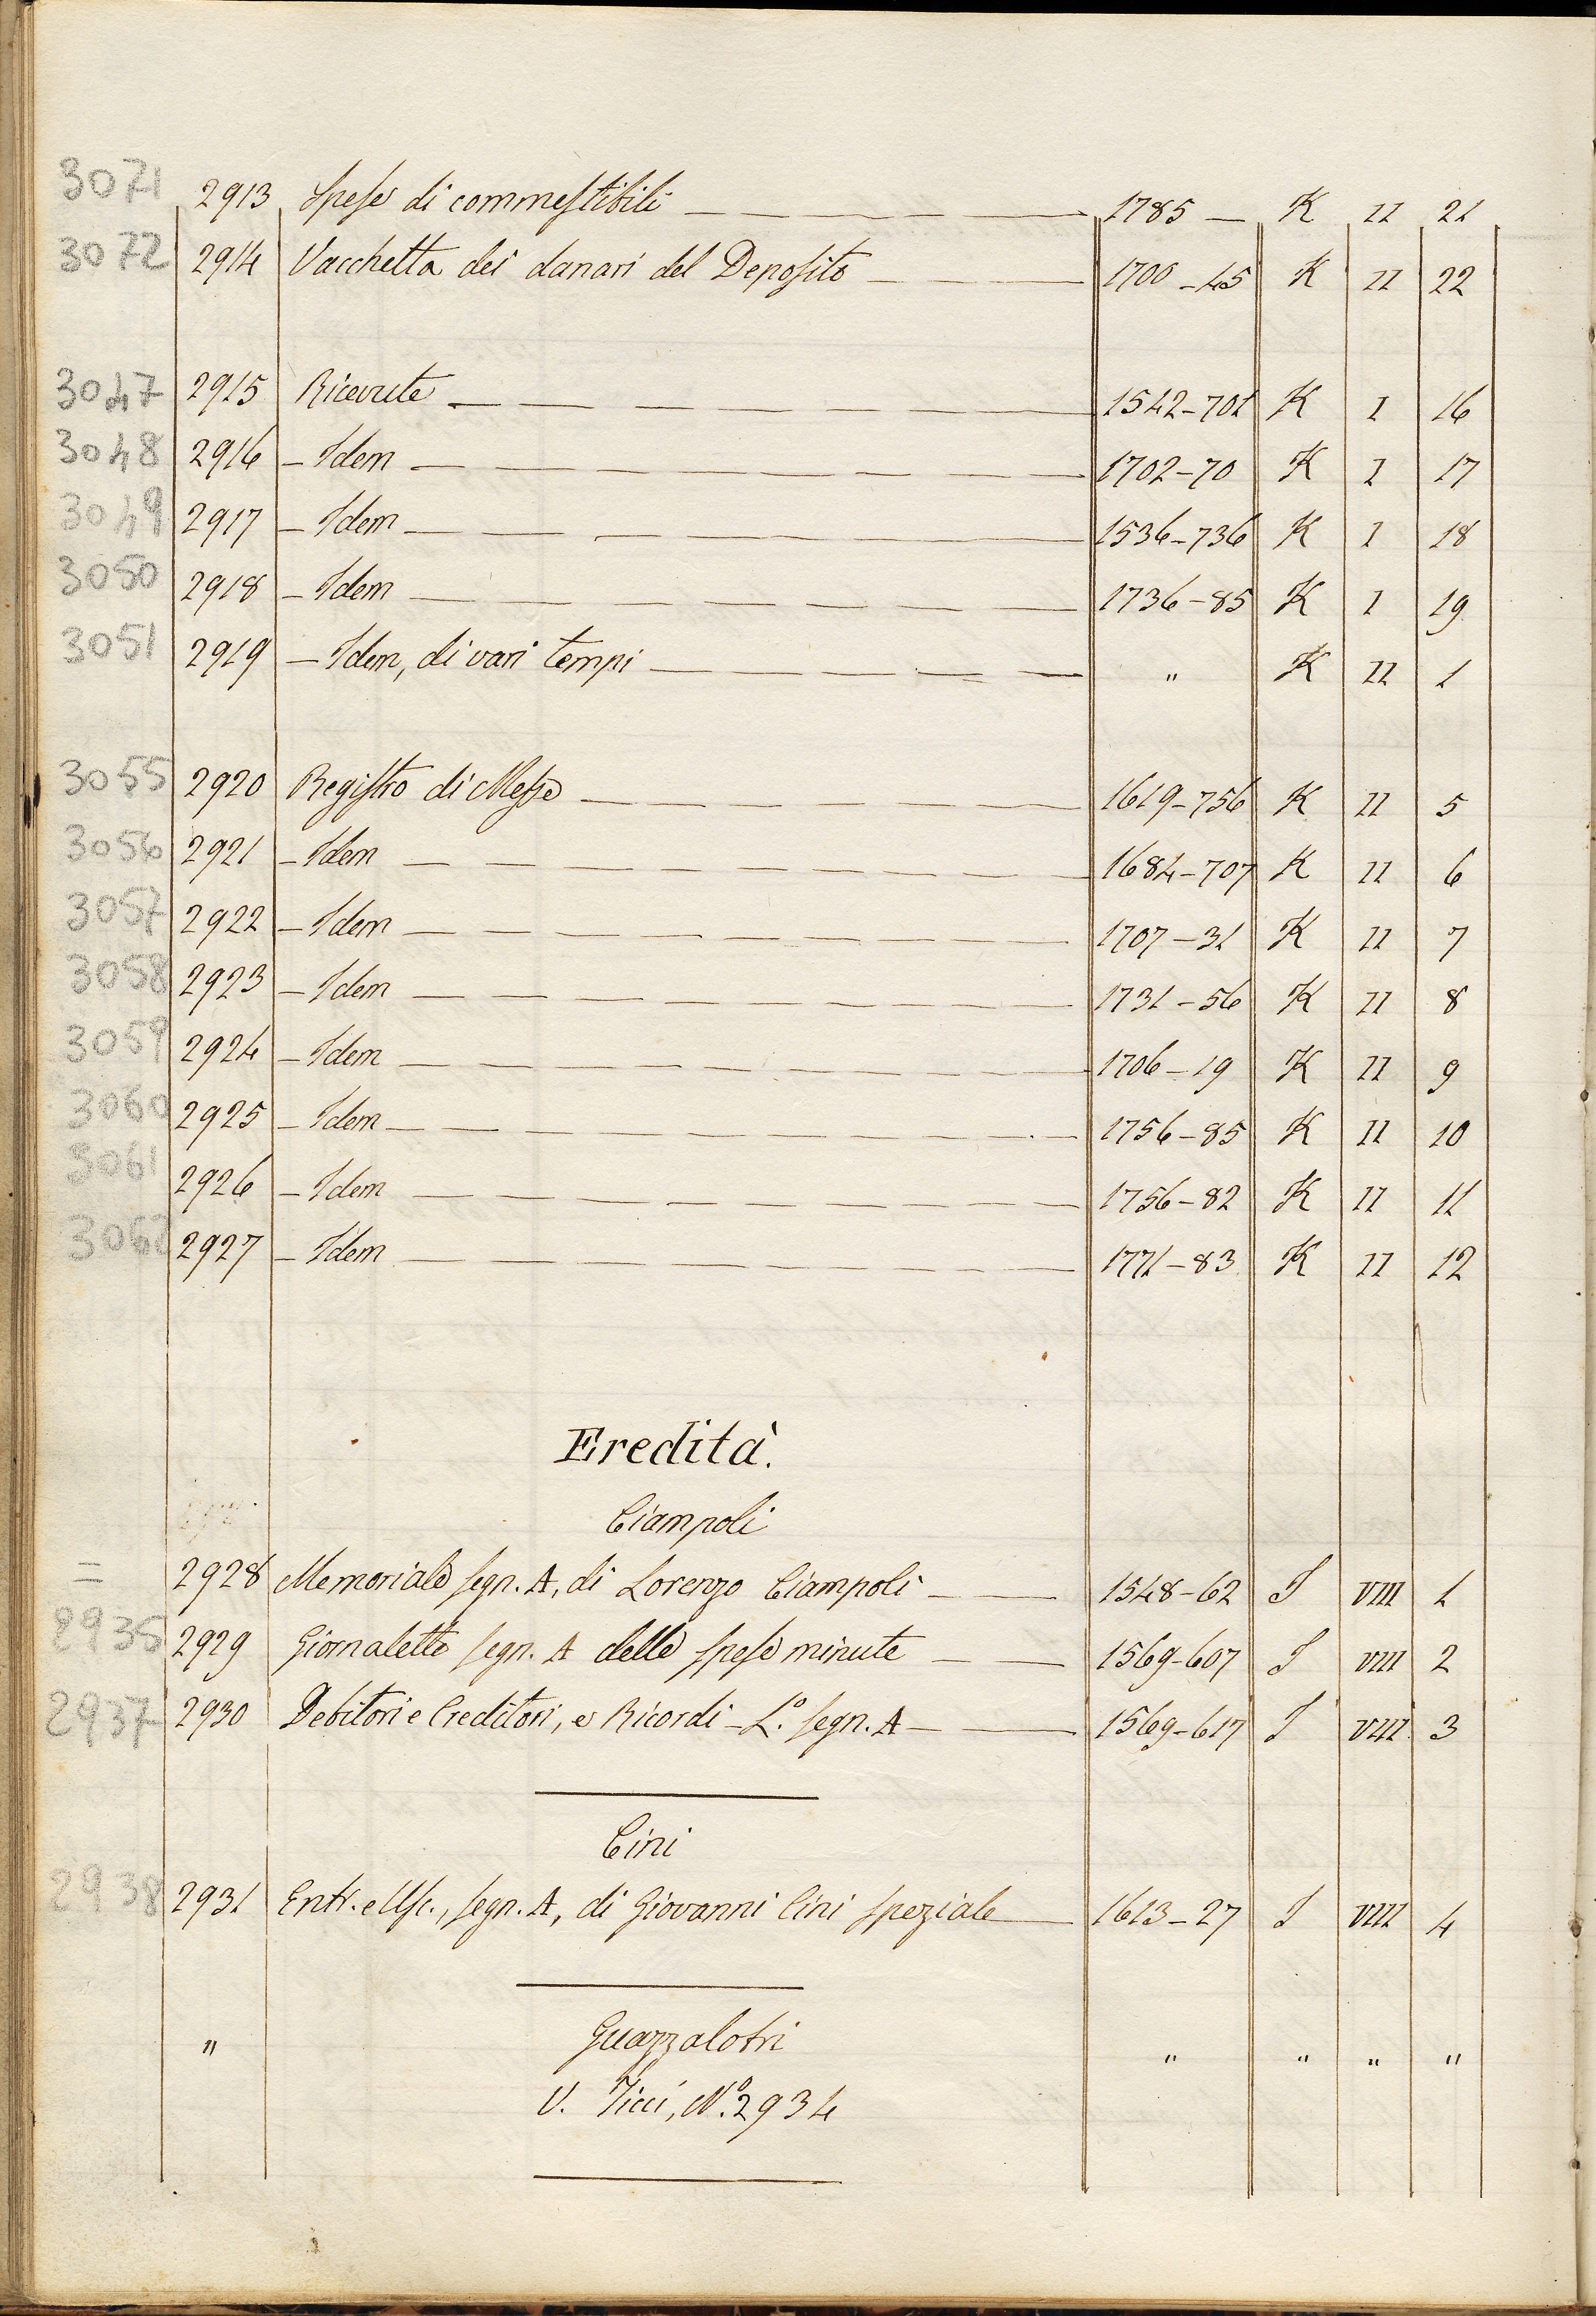 3071 2913 Spese di commestibili 1785 — K II 21
3072 2914 Vacchetta dei danari del Deposito 1700 - 45 K II 22
3047 2915 Ricevute 1542-701 K I 16
3048 2916 - Idem 1702-70 K I 17
3049 2917 - Idem 1536-736 K I 18
3050 2918 - Idem 1736-85 K I 19
3051 2919 - Idem, di vari tempi " K II 1
3055 2920 Registro di Messe 1619-756 K II 5
3056 2921 - Idem 1684-707 K II 6
3057 2922 - Idem 1707-31 K II 7
3058 2923 - Idem 1731-56 K II 8
3059 2924 - Idem 1706-19 K II 9
3060 2925 - Idem 1756-85 K II 10
3061 2926 - Idem 1756-82 K II 11
3062 2927 - Idem 1771-83 K II 12
Eredità.
Ciampoli
= 2928 Memoriale segn. A, di Lorenzo Ciampoli 1548-62 I VIII 1
2935 2929 Giornaletto segn. A delle spese minute 1569-607 I VIII 2
2937 2930 Debitori e Creditori, e Ricordi - L.º segn. A 1569-617 I VIII 3
Cini
2938 2931 Entr. e Usc., segn. A, di Giovanni Cini speziale 1613-27 I VIII 4
" Guazzalotri " " " "
V. Ticci, N.º 2934